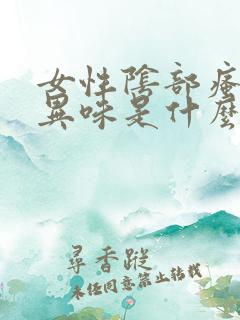 女性陰部瘙
異味是什麼
尋香蹤
未經同意禁止轉載